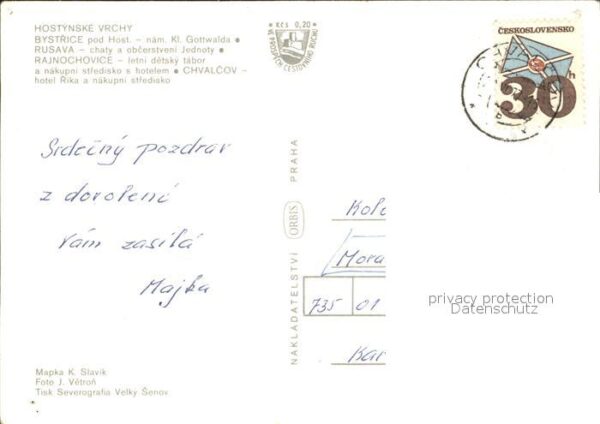 HOSTÝNSKÉ VRCHY
BYSTŘICE pod Host. – nám. Kl. Gottwalda ●
RUSAVA – chaty a občerstvení Jednoty ●
RAJNOCHOVICE – letní dětský tábor
a nákupní středisko s hotelem ● CHVALČOV –
hotel Říka a nákupní středisko
Kčs 0,20
VE PROSPĚCH CESTOVNÍHO RUCHU
ČESKOSLOVENSKO
30h
Srdečný pozdrav
z dovolení
Vám zasílá
Majka
NAKLADATELSTVÍ ORBIS PRAHA
Kolo
Mora
735 01
Kar
privacy protection
Datenschutz
Mapka K. Slavík
Foto J. Větroň
Tisk Severografia Velký Šenov